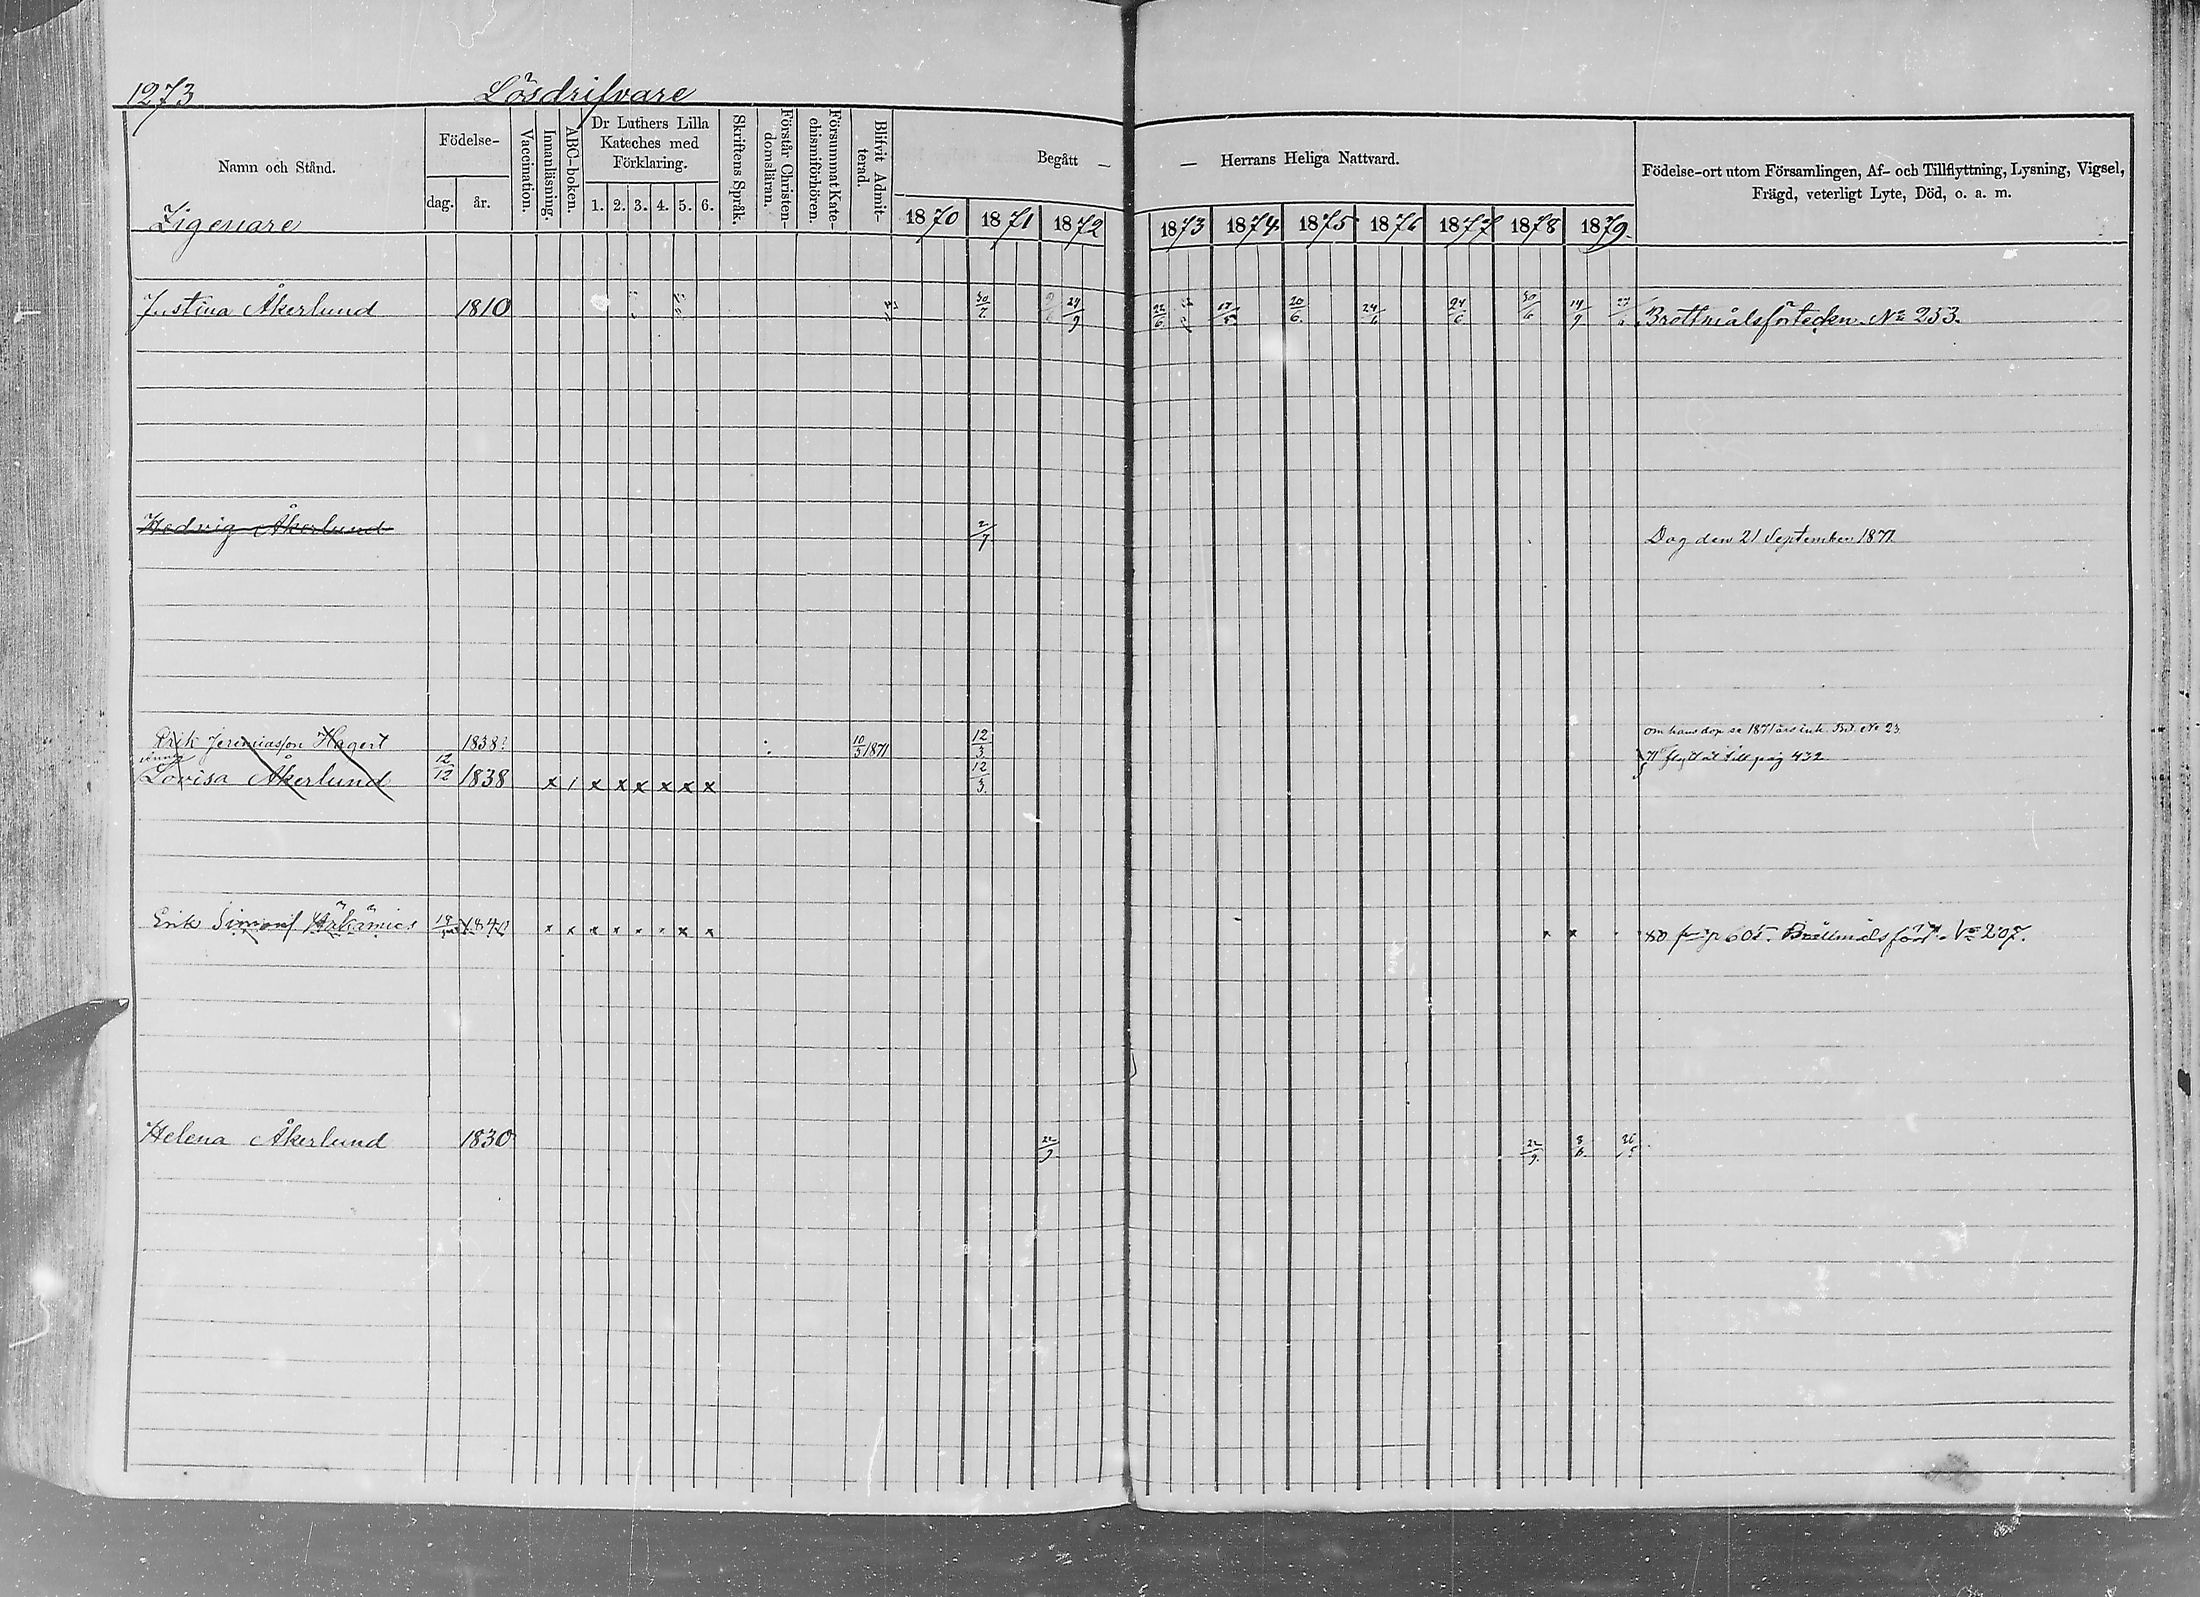 1273 Lösdrifvare
Namn och Stånd.
Födelse-
dag. år.
Vaccination.
Innanläsning.
ABC-boken.
Dr Luthers Lilla
Kateches med
Förklaring.
1. 2. 3. 4. 5. 6.
Skriftens Språk.
Förstår Christen-
domsläran.
Försummat Kate-
chismiförhören.
Blifvit Admit-
terad.
Begått — — Herrans Heliga Nattvard.
1870 1871 1872 1873 1874 1875 1876 1877 1878 1879
Födelse-ort utom Församlingen, Af- och Tillflyttning, Lysning, Vigsel,
Frägd, veterligt Lyte, Död, o. a. m.
Zigenare
Justina Åkerlund 1810 30/7 24/9 22/6 20/6 24/6 24/6 30/6 14/9 Brottmålsförteckn. No 253.
Hedvig Åkerlund 2/7 Dog den 21 September 1871.
Erik Jeremiasson Hagert 1838? 10/3 1871 12/3 om hans dop se 1871 års ink. Bd. No 23
Lovisa Åkerlund 12/12 1838 x / x x x x x x 12/3. 71 flyttat till pag 432
Erik Simonss 1840 x x x x x x x x x x 605. Brottmålsfört. No 207.
Helena Åkerlund 1830 22/9. 22/9. 8/6.